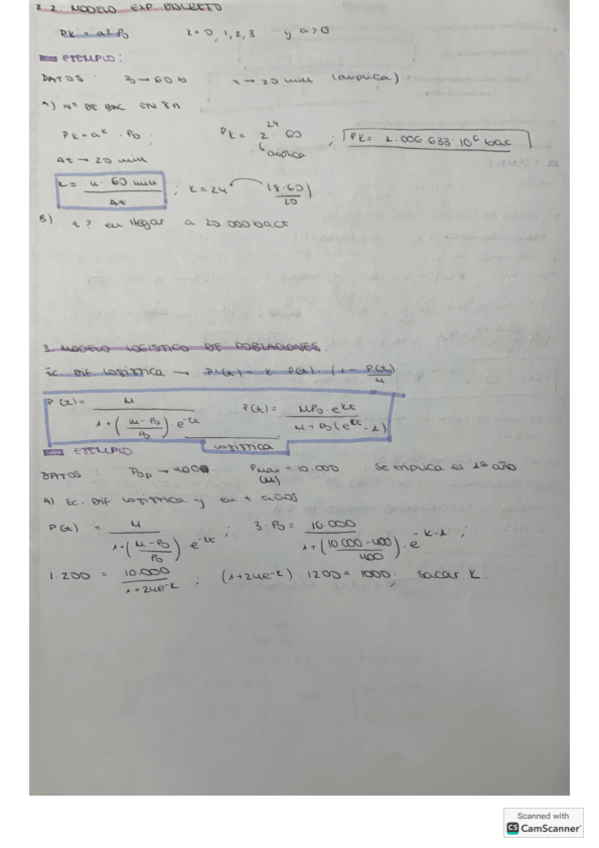 2.2. MODELO EXP DISCRETO
Pk = a^k P0   k = 0, 1, 2, 3   y a > 0
EJEMPLO:
DATOS: P0 → 60 b   t → 20 min (duplica)
A) nº DE BAC EN 8h
Pk = a^k · P0;   Pk = 2^24 · 60;   Pk = 1.006.633·10^6 bac
duplica
Δt → 20 min
k = n · 60 min / Δt;   k = 24   (8·60)/20
B) t? en llegar a 20 000 bact
3. MODELO LOGISTICO DE POBLACIONES.
Ec. Dif LOGISTICA → P'(t) = k · P(t) · (1 - P(t)/M)
P(t) = M / (1 + ((M-P0)/P0) · e^-kt)   P(t) = MP0 e^kt / (M + P0(e^kt - 1))
LOGISTICA
EJEMPLO
DATOS: → 400   Pmax = 10.000   se triplica el 1º año
(M)
A) Ec. Dif LOGISTICA y en t años
P(t) = M / (1 + ((M-P0)/P0) e^-kt);   3·P0 = 10.000 / (1 + ((10.000-400)/400) · e^-k·1);
1.200 = 10.000 / (1+24e^-k);   (1+24e^-k) · 1200 = 1000;   sacar k.
Scanned with
CS CamScanner